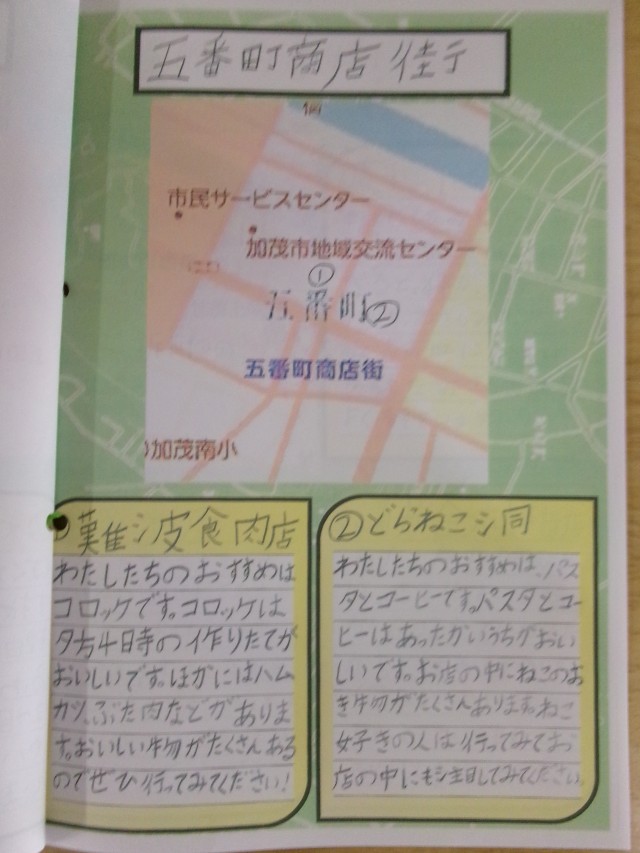 五番町商店街
市民サービスセンター
加茂市地域交流センター
①
五番町②
五番町商店街
加茂南小
難波食肉店
わたしたちのおすすめは
コロッケです。コロッケは
夕方4時の作りたてが
おいしいです。ほかにはハム
カツ、ぶた肉などがありま
す。おいしい物がたくさんある
のでぜひ行ってみてください!
②どらねこ洞
わたしたちのおすすめは、パス
タとコーヒーです。パスタとコー
ヒーはあったかいうちがおい
しいです。お店の中にねこのお
き物がたくさんあります。ねこ
好きの人は行ってみてお
店の中にも注目してみてください。